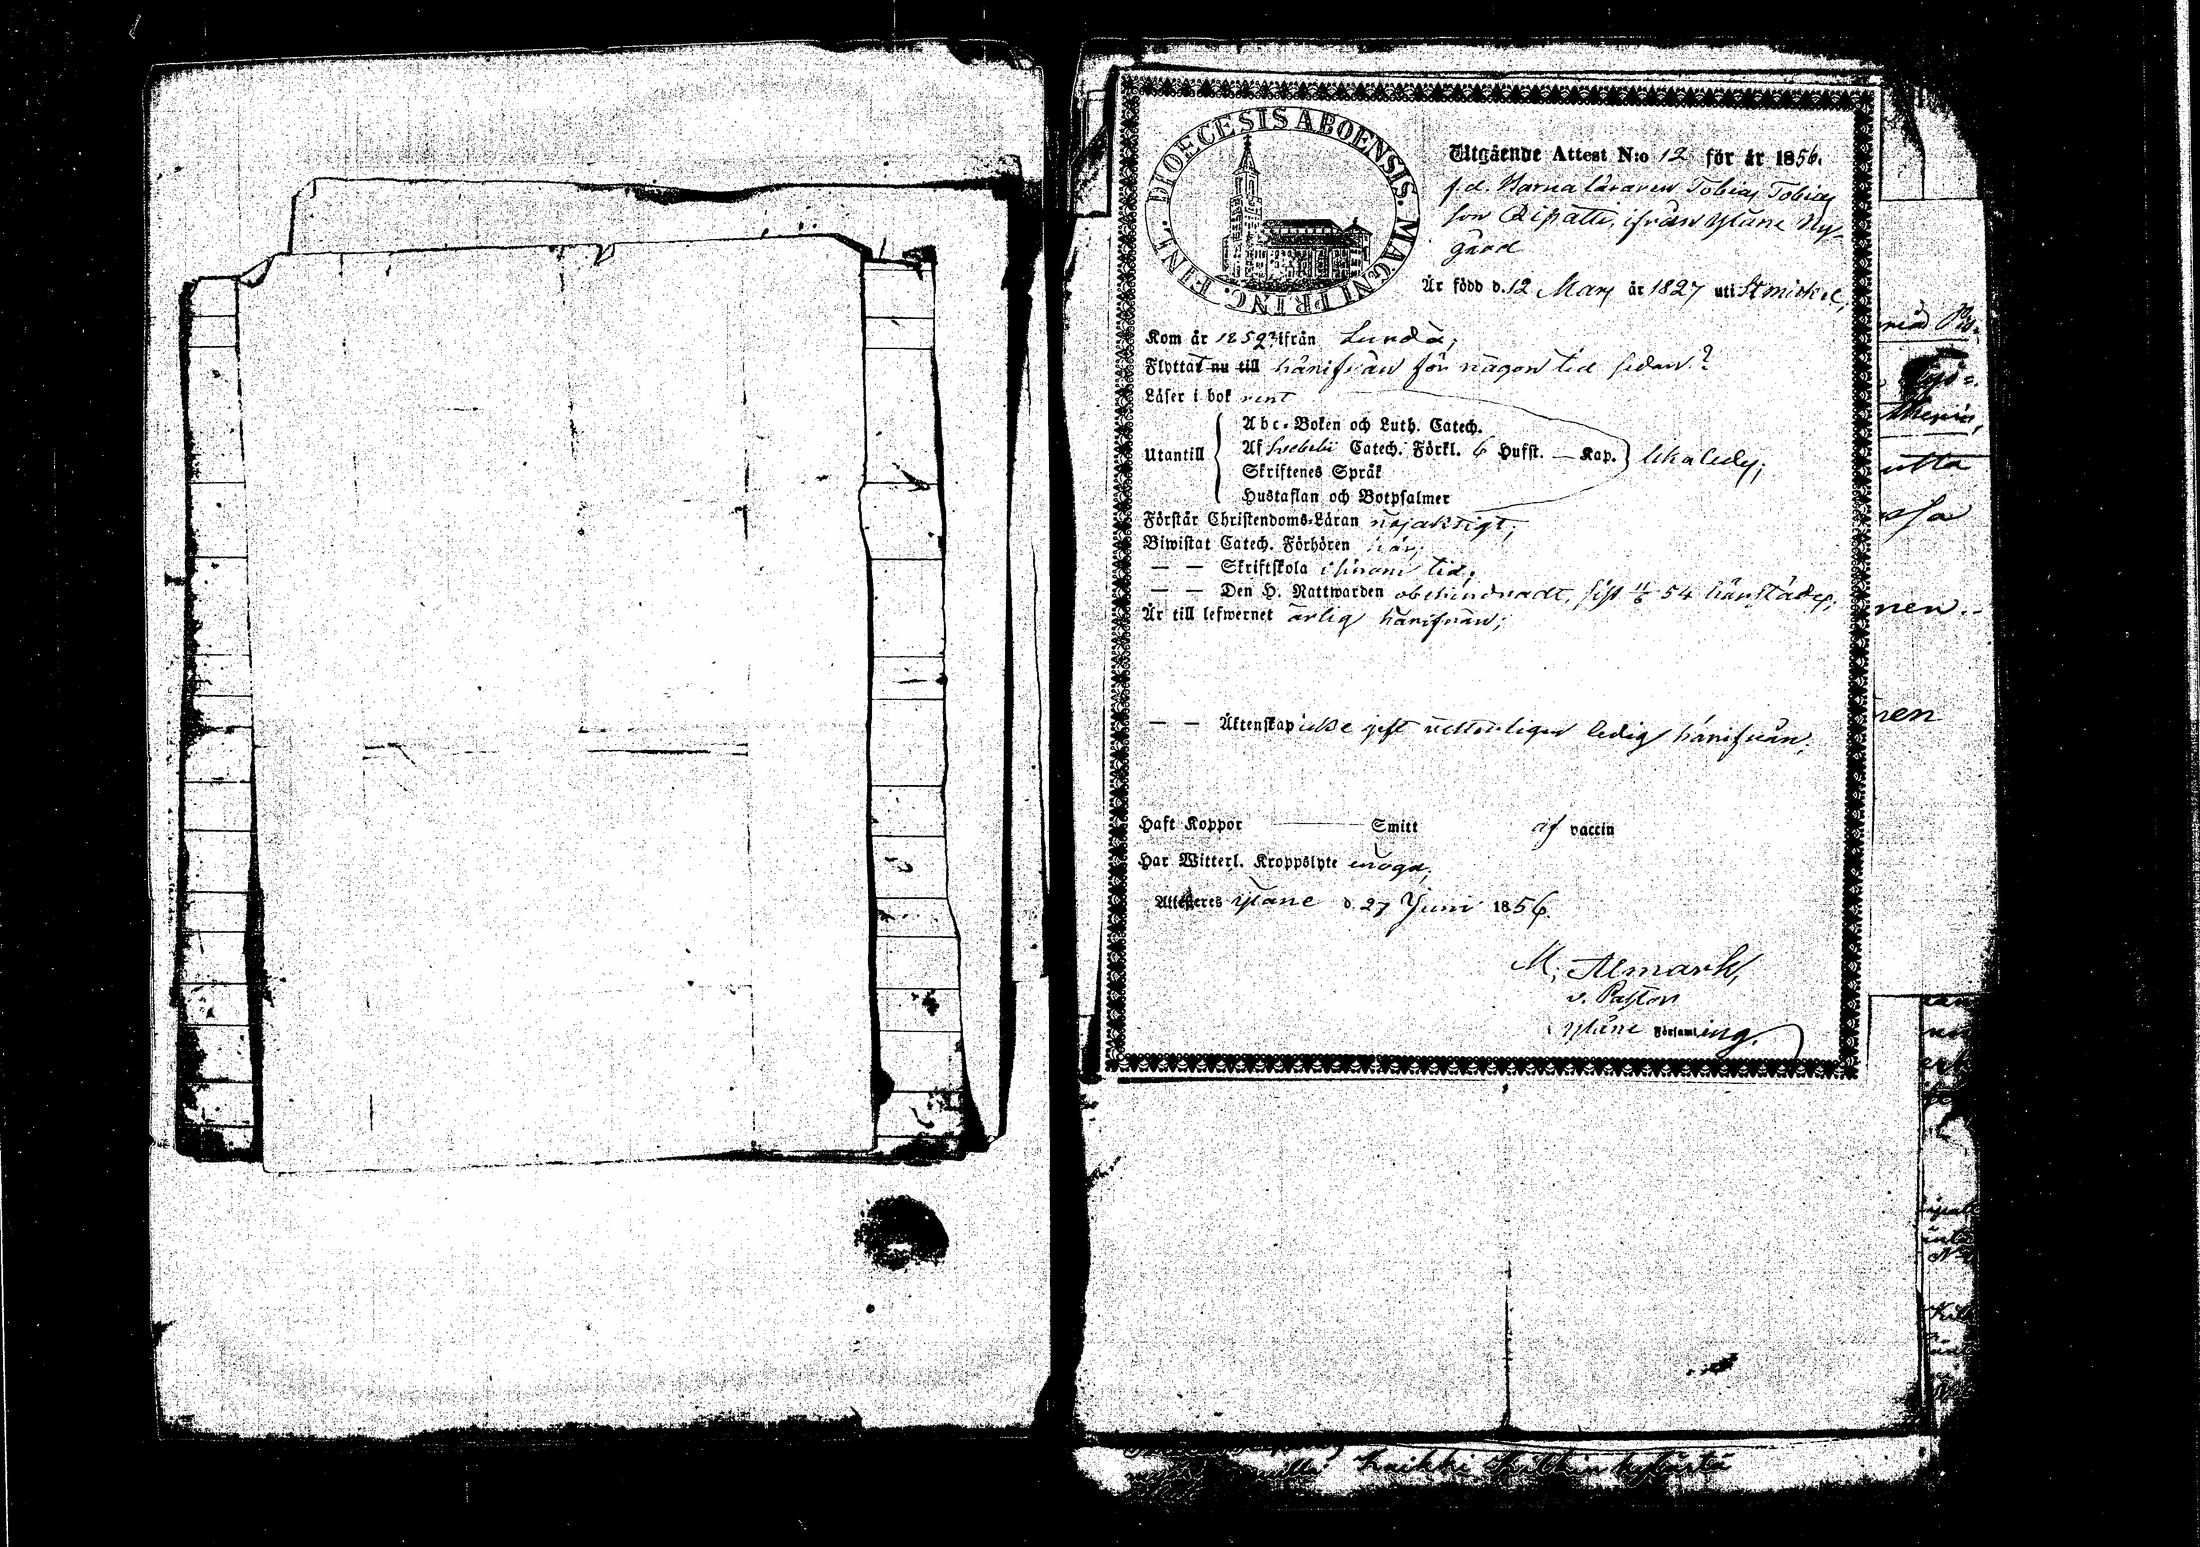 DIOECESIS ABOENSIS. MAGNI PRINC. FINL.
Utgående Attest N:o 12 för år 1856.
f.d. Barnaläraren Tobias Tobias
son Ripatti, ifrån Yläne Ny-
gård
Är född d. 12 Mars år 1827 uti St Michel,
Kom år 1852? ifrån
Flyttat nu till härifrån för någon tid sedan?
Läser i bok rent
Utantill
Abc-Boken och Luth. Catech.
Af Svebelii Catech. Förkl. 6 Hufst. — Kap.
Skriftenes Språk
Hustaflan och Botpsalmer
Förstår Christendoms-Läran nöjaktigt;
Biwistat Catech. Förhören här;
— — Skriftskola i sinom tid;
— — Den H. Nattwarden obehindradt, sist 54 härstädes;
Är till lefwernet ärlig härifrån;
— — Äktenskap icke gift vetterligen ledig härifrån;
Haft Koppor — Smitt af vaccin
Har Witterl. Kroppslyte inoga;
Attesteres Yläne d. 27 Juni 1856.
M. Almark,
v. Pastor
Yläne Församling.
nen
nen
kaikki kylästä